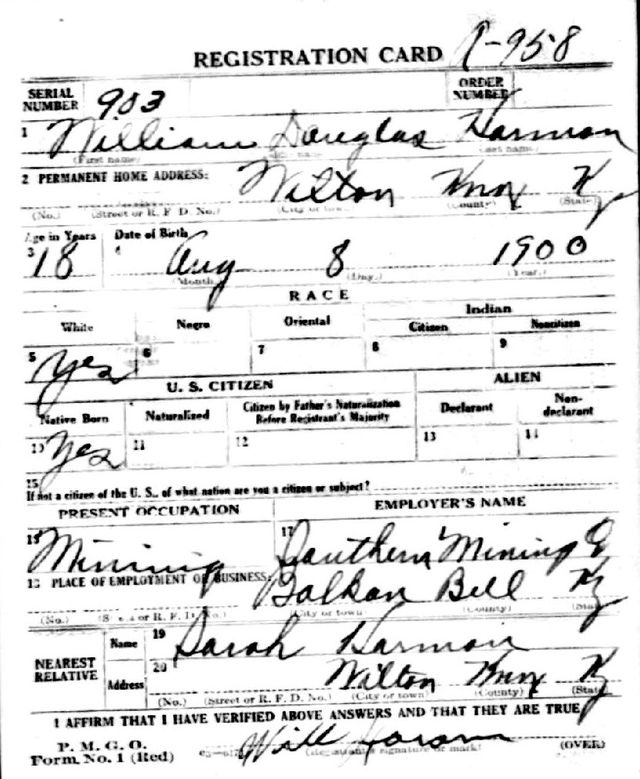 REGISTRATION CARD
SERIAL NUMBER 903 ORDER NUMBER
1 William Douglas Harmon
(First name) (Last name)
2 PERMANENT HOME ADDRESS: Wilton Knox Ky
(No.) (Street or R. F. D. No.) (City or town) (County) (State)
Age in Years Date of Birth
3 18 4 Aug 8 1900
(Month.) (Day.) (Year.)
RACE
White Negro Oriental Indian
Citizen Noncitizen
5 Yes 6 7 8 9
U. S. CITIZEN ALIEN
Native Born Naturalized Citizen by Father's Naturalization Before Registrant's Majority Declarant Non-declarant
10 Yes 11 12 13 14
15
If not a citizen of the U. S., of what nation are you a citizen or subject?
PRESENT OCCUPATION EMPLOYER'S NAME
16 Mining 17 Southern Mining Co
18 PLACE OF EMPLOYMENT OR BUSINESS: Bell Ky
(No.) (Street or R. F. D. No.) (City or town) (County) (State)
NEAREST RELATIVE
Name 19 Sarah Harmon
Address 20 Wilton Knox Ky
(No.) (Street or R. F. D. No.) (City or town) (County) (State)
I AFFIRM THAT I HAVE VERIFIED ABOVE ANSWERS AND THAT THEY ARE TRUE
P. M. G. O.
Form No. 1 (Red) Will
(Registrant's signature or mark) (OVER)